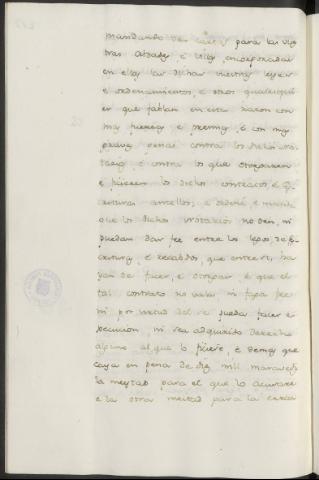 mandando dar cartas para las vŕas
tras Cibdades, e villas encorporadas
en ellas las dichas nuestras leyes
e ordenamientos, e otros qualesqui
er que fablan en esta racon con
may fuercas, e firmezas, e con may
graves penas contra los dichos no
tarios, e contra los que otorgaren
e ficieren los dichos contratos, e es
crituras ante ellos, e ordene, e mande
que los dichos notarios no den, ni
puedan dar fee entre los legos, de es
critura, e recabdos, que entre si, ha
yan de facer, e otorgar e que el
tal contrato no vala, ni faga fee
ni por virtud del se pueda facer e
jecucion, ni sea adquirido derecho
alguno al que lo ficiere, e demas que
caya en pena de diez mil maravedis
la meytad para el que lo acusare
e la otra meitad para la